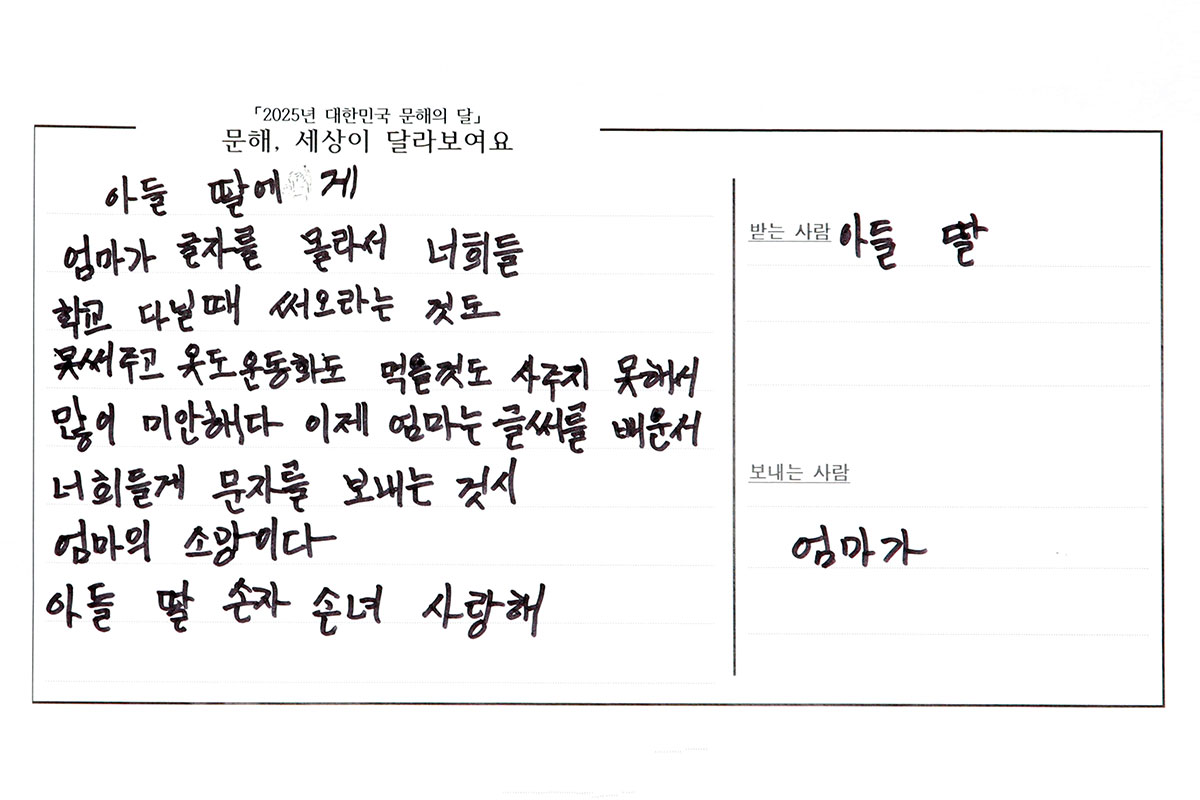 「2025년 대한민국 문해의 달」
문해, 세상이 달라보여요
아들 딸에 게
엄마가 글자를 몰라서 너희들
학교 다닐때 써오라는 것도
못써주고 옷도 운동화도 먹을것도 사주지 못해서
많이 미안해다 이제 엄마는 글씨를 배운서
너희들게 문자를 보내는 것시
엄마의 소망이다
아들 딸 손자 손녀 사랑해
받는 사람 아들 딸
보내는 사람
엄마가